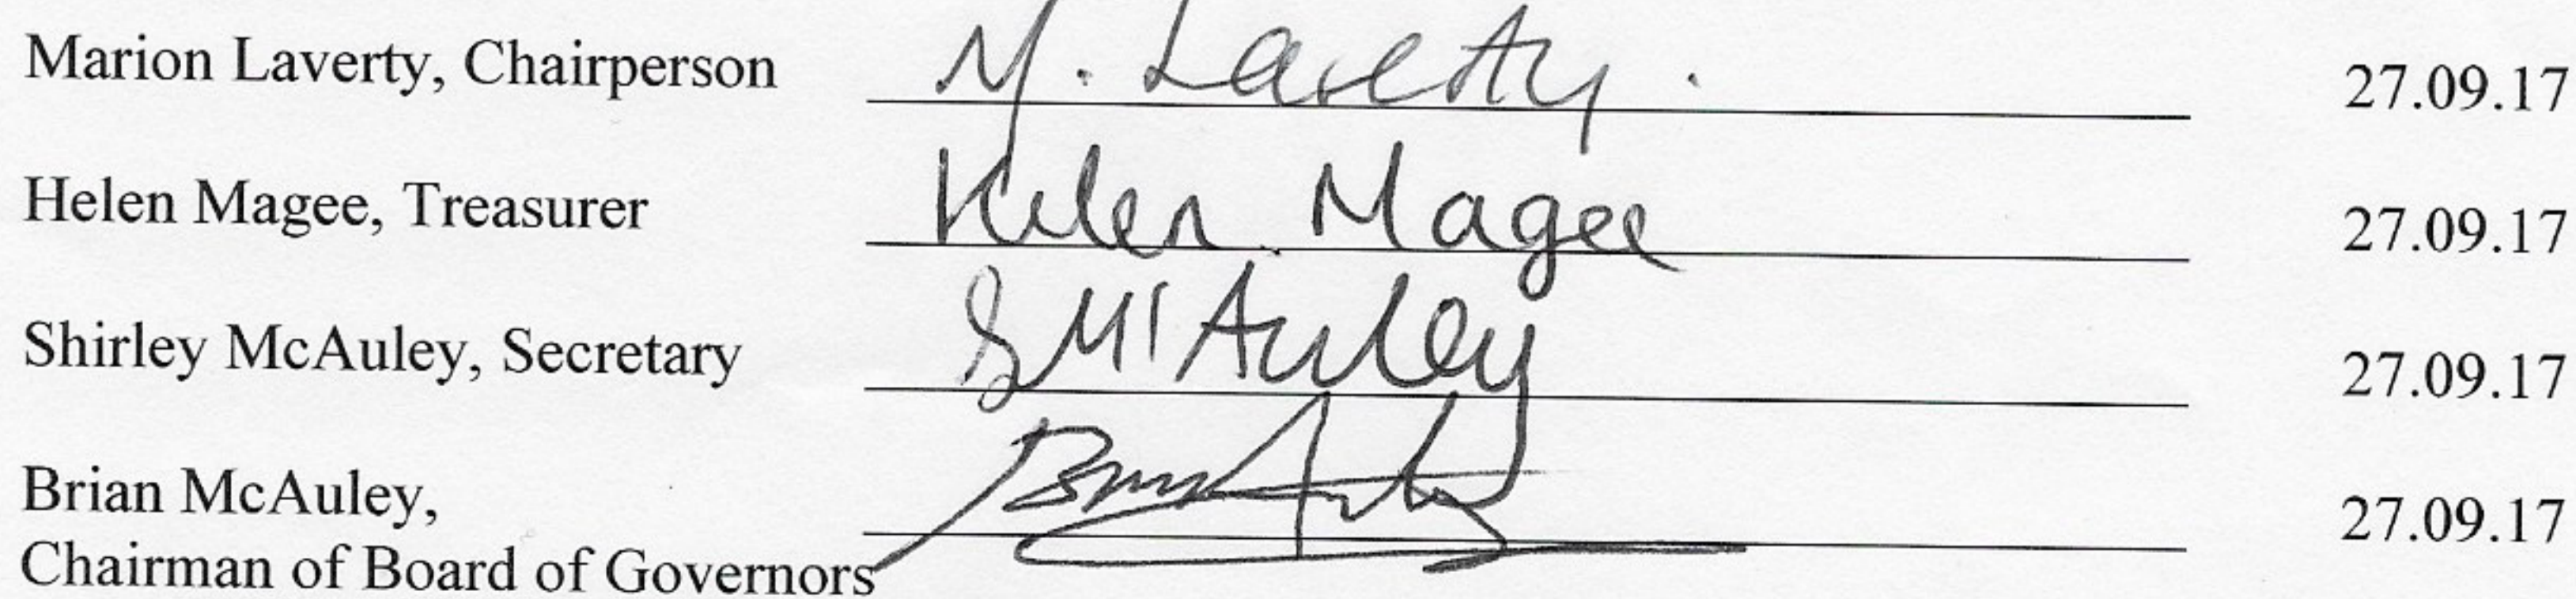 Marion Laverty, Chairperson M. Laverty. 27.09.17
Helen Magee, Treasurer Helen Magee 27.09.17
Shirley McAuley, Secretary S McAuley 27.09.17
Brian McAuley, 27.09.17
Chairman of Board of Governors